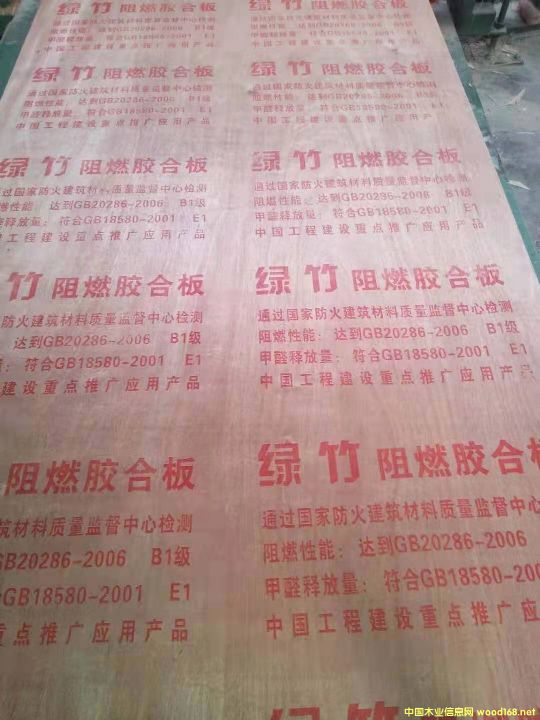 通过国家防火建筑材料质量监督中心检测
阻燃性能: 达到GB20286-2006 B1级
甲醛释放量: 符合GB18580-2001 E1
中国工程建设重点推广应用产品
绿竹 阻燃胶合板
通过国家防火建筑材料质量监督中心检测
阻燃性能: 达到GB20286-2006 B1级
甲醛释放量: 符合GB18580-2001 E1
中国工程建设重点推广应用产品
绿竹 阻燃胶合板
通过国家防火建筑材料质量监督中心检测
阻燃性能: 达到GB20286-2006 B1级
甲醛释放量: 符合GB18580-2001 E1
中国工程建设重点推广应用产
绿竹 阻燃胶合板
过国家防火建筑材料质量监督中心检测
燃性能: 达到GB20286-2006 B1级
释放量: 符合GB18580-2001 E1
工程建设重点推广应用产品
绿竹 阻燃胶合板
通过国家防火建筑材料质量监督中心检测
阻燃性能: 达到GB20286-2006 B1级
甲醛释放量: 符合GB18580-2001 E1
中国工程建设重点推广应用产品
竹 阻燃胶合板
防火建筑材料质量监督中心检测
达到GB20286-2006 B1级
: 符合GB18580-2001 E1
建设重点推广应用产品
绿竹 阻燃胶合板
通过国家防火建筑材料质量监督中心检测
阻燃性能: 达到GB20286-2006 B1级
甲醛释放量: 符合GB18580-2001 E1
中国工程建设重点推广应用产品
阻燃胶合板
筑材料质量监督中心检测
GB20286-2006 B1级
合GB18580-2001 E1
重点推广应用产品
绿竹 阻燃胶合板
通过国家防火建筑材料质量监督中心
阻燃性能: 达到GB20286-2006
甲醛释放量: 符合GB18580-2001
中国工程建设重点推广应用产
绿竹
中国木业信息网 wood168.net